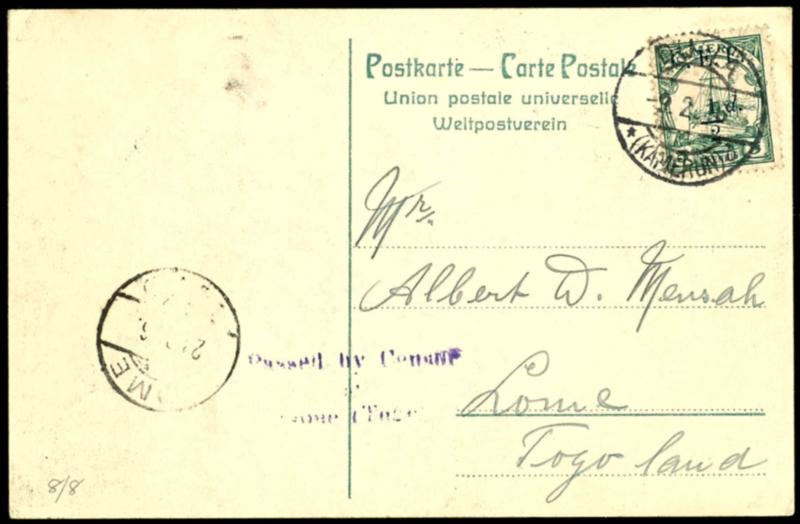 Postkarte — Carte Postale
Union postale universelle
Weltpostverein
KAMERUN
1d.
2
(KAMERUN)
Mr.
Albert W. Mensah
Lome
Togoland
Passed by Censor
Lome (Togo
OME
8/8